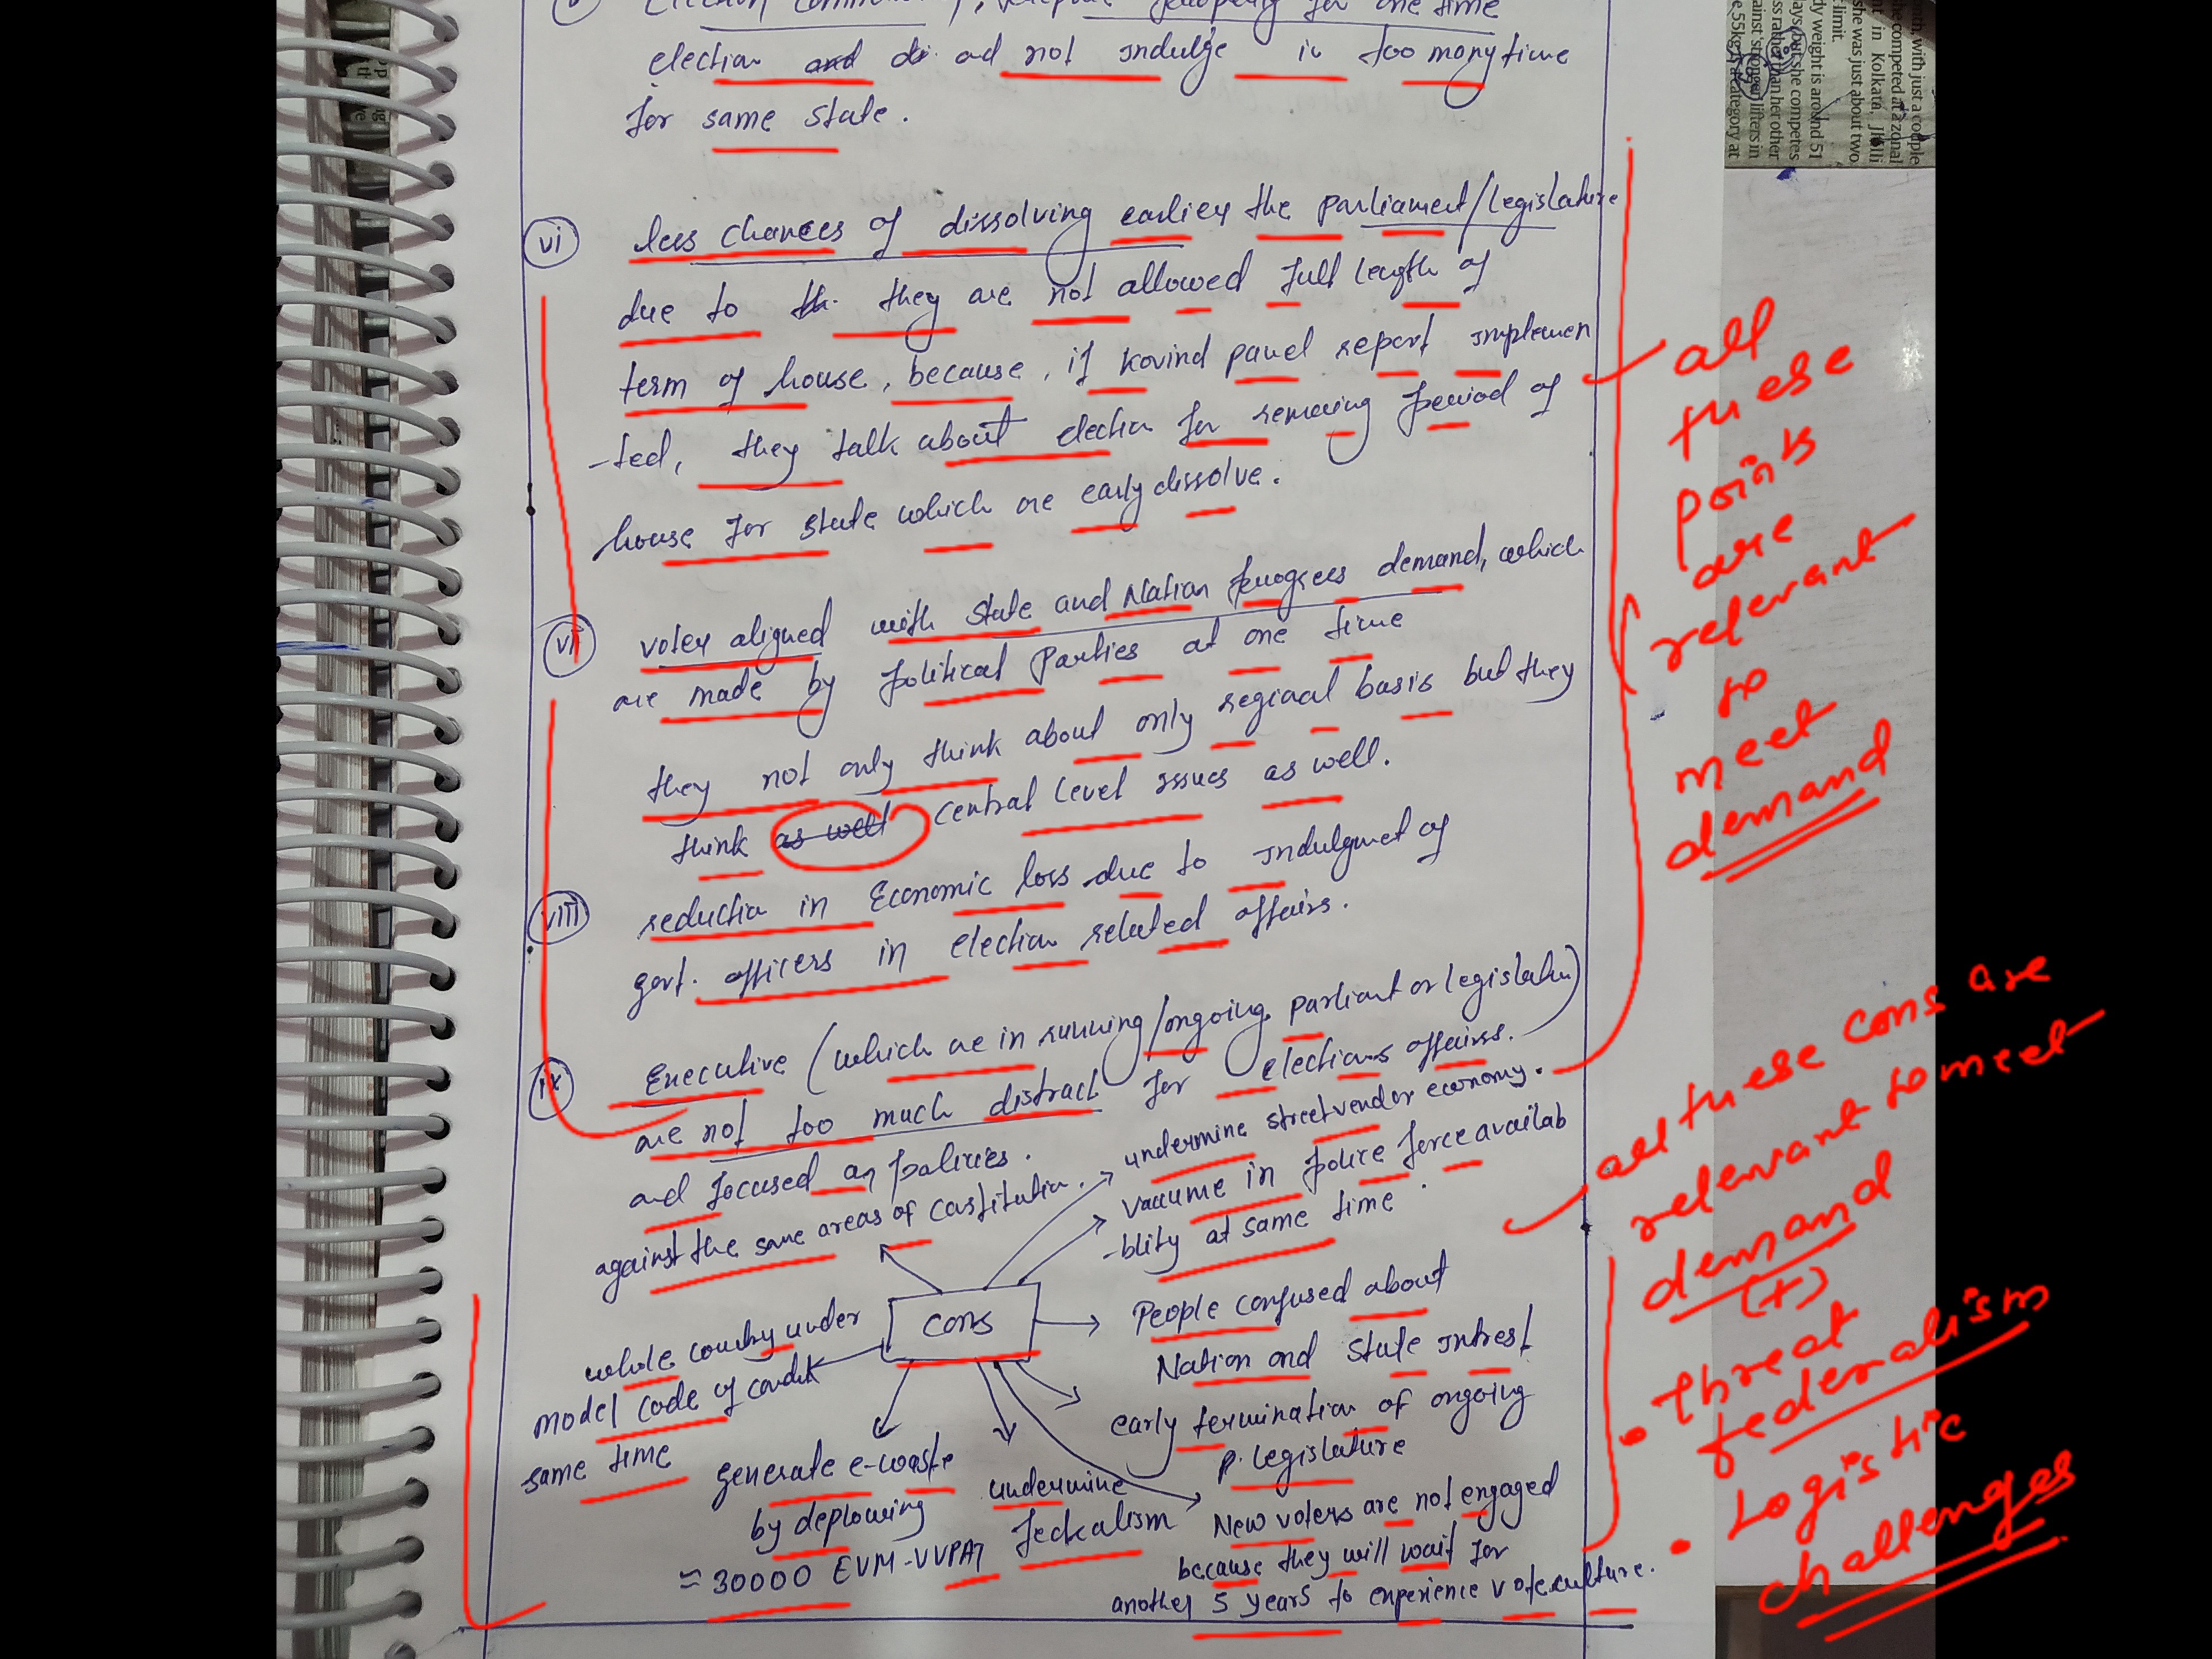 election and di ad not indulge in too many time
for same state.
vi less chances of dissolving earlier the Parliament/legislature
due to th. they are not allowed full length of
term of house, because, if Kovind panel report implemen
-ted, they talk about election for remaing period of
house for state which are early dissolve.
vii voter aligned with state and Nation progress demand, which
are made by political Parties at one time
they not only think about only regioal basis but they
think as well central level issues as well.
viii reduction in Economic loss due to indulgmet of
govt. officers in election related affairs.
ix Executive (which are in running/ongoing parliant or legislatu)
are not too much distract for elections affairs.
and focused on policies.
against the same areas of constitution.
undermine street vendor economy.
vacume in police force availab
-blity at same time.
cons
People confused about
Nation and state intrest
early termination of ongoing
p. legislature
New voters are not engaged
because they will wait for
another 5 years to experience vote culture.
undermine
fedealism
generate e-waste
by deplowing
≈ 30000 EVM-VVPAT
whole country under
model code of condt
same time
all
these
points
are
relevant
to
meet
demand
all these cons are
relevant to meet
demand
(+)
• threat
federalism
• Logistic
challenges
with just a couple
she competed at a zonal
nt in Kolkata. Jhilli
she was just about two
limit.
dy weight is around 51
ays but she competes
ss rather than her other
ainst stronger lifters in
e 55kg category at